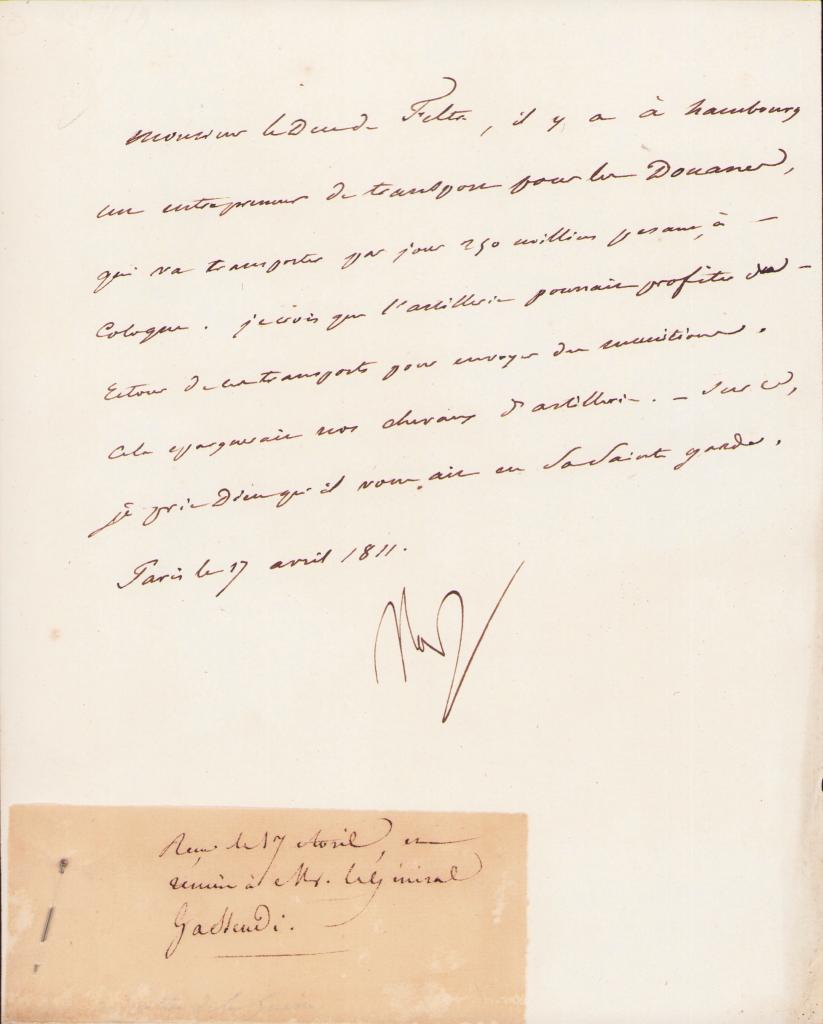 Monsieur le Duc de Feltre, il y a à hambourg
un entrepreneur de transport pour les Douanes,
qui va transporter par jour 250 milliers pesant, à –
Cologne. je crois que l'artillerie pourrait profiter du –
retour de ces transports pour envoyer des munitions.
cela epargnerait nos chevaux d'artillerie. – Sur ce,
je prie Dieu qu'il vous ait en Sa Sainte garde.
Paris le 17 avril 1811.
Nap
Reçu le 17 Avril, et
remise à Mr. le Général
Gassendi.